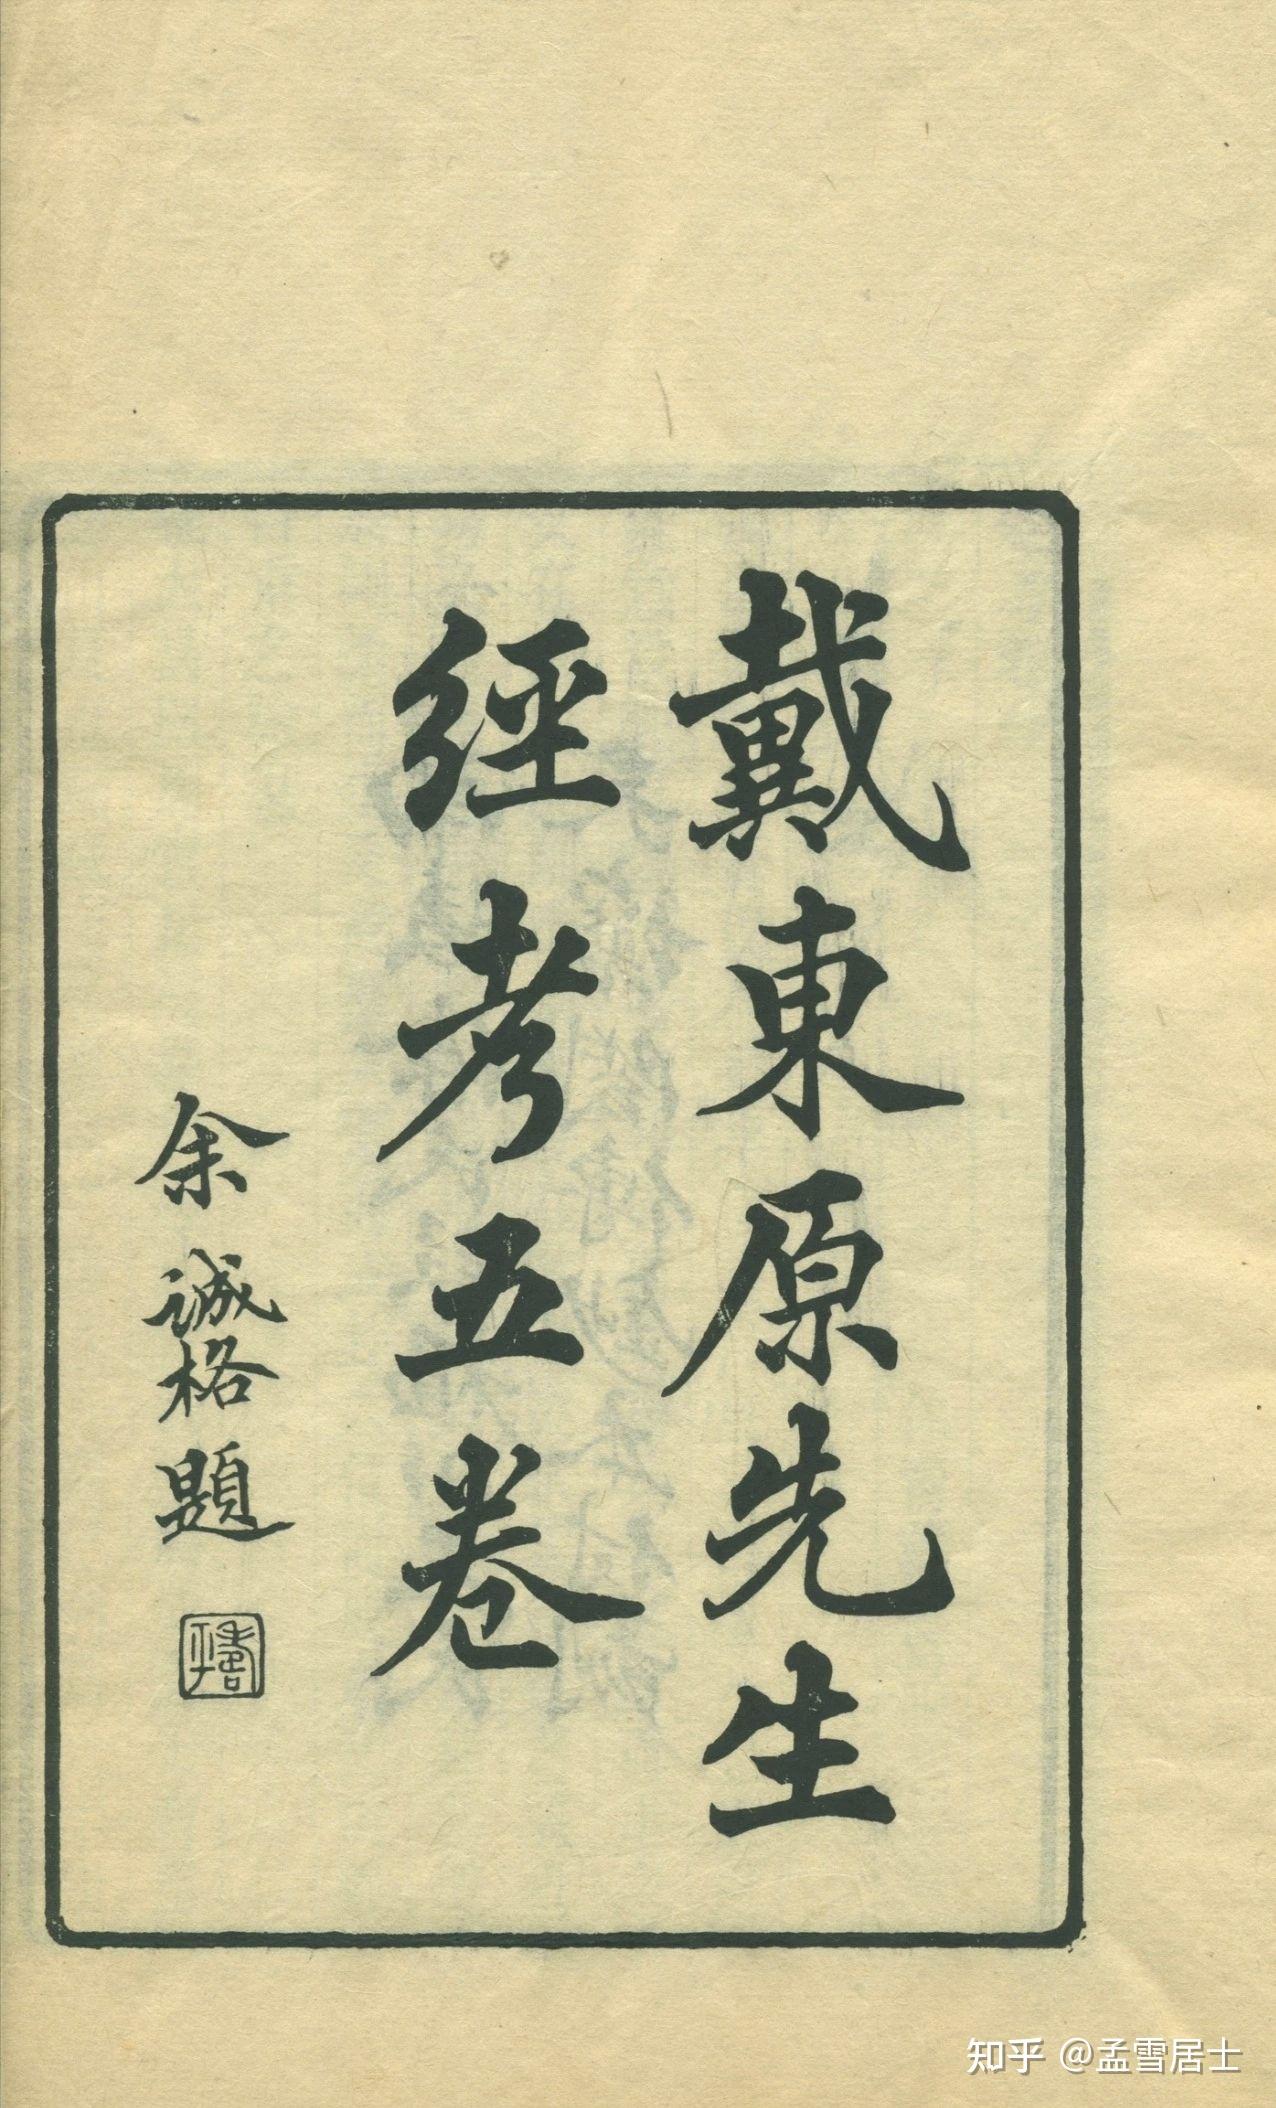 戴東原先生
經考五卷
余誠格題
知乎 @孟雪居士